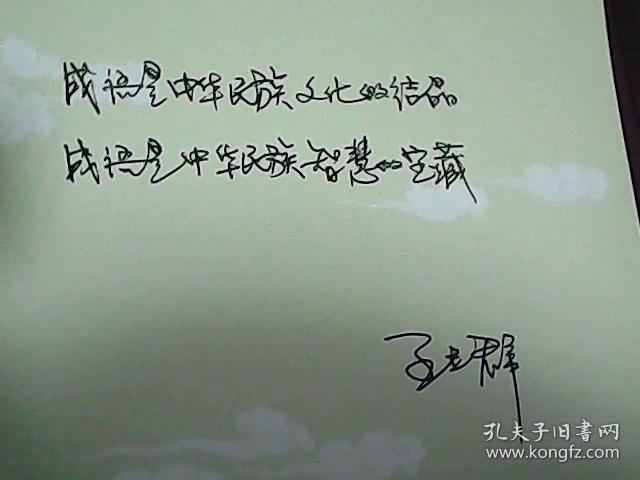 成语是中华民族文化的结晶
成语是中华民族智慧的宝藏
王立群
孔夫子旧书网
www.kongfz.com